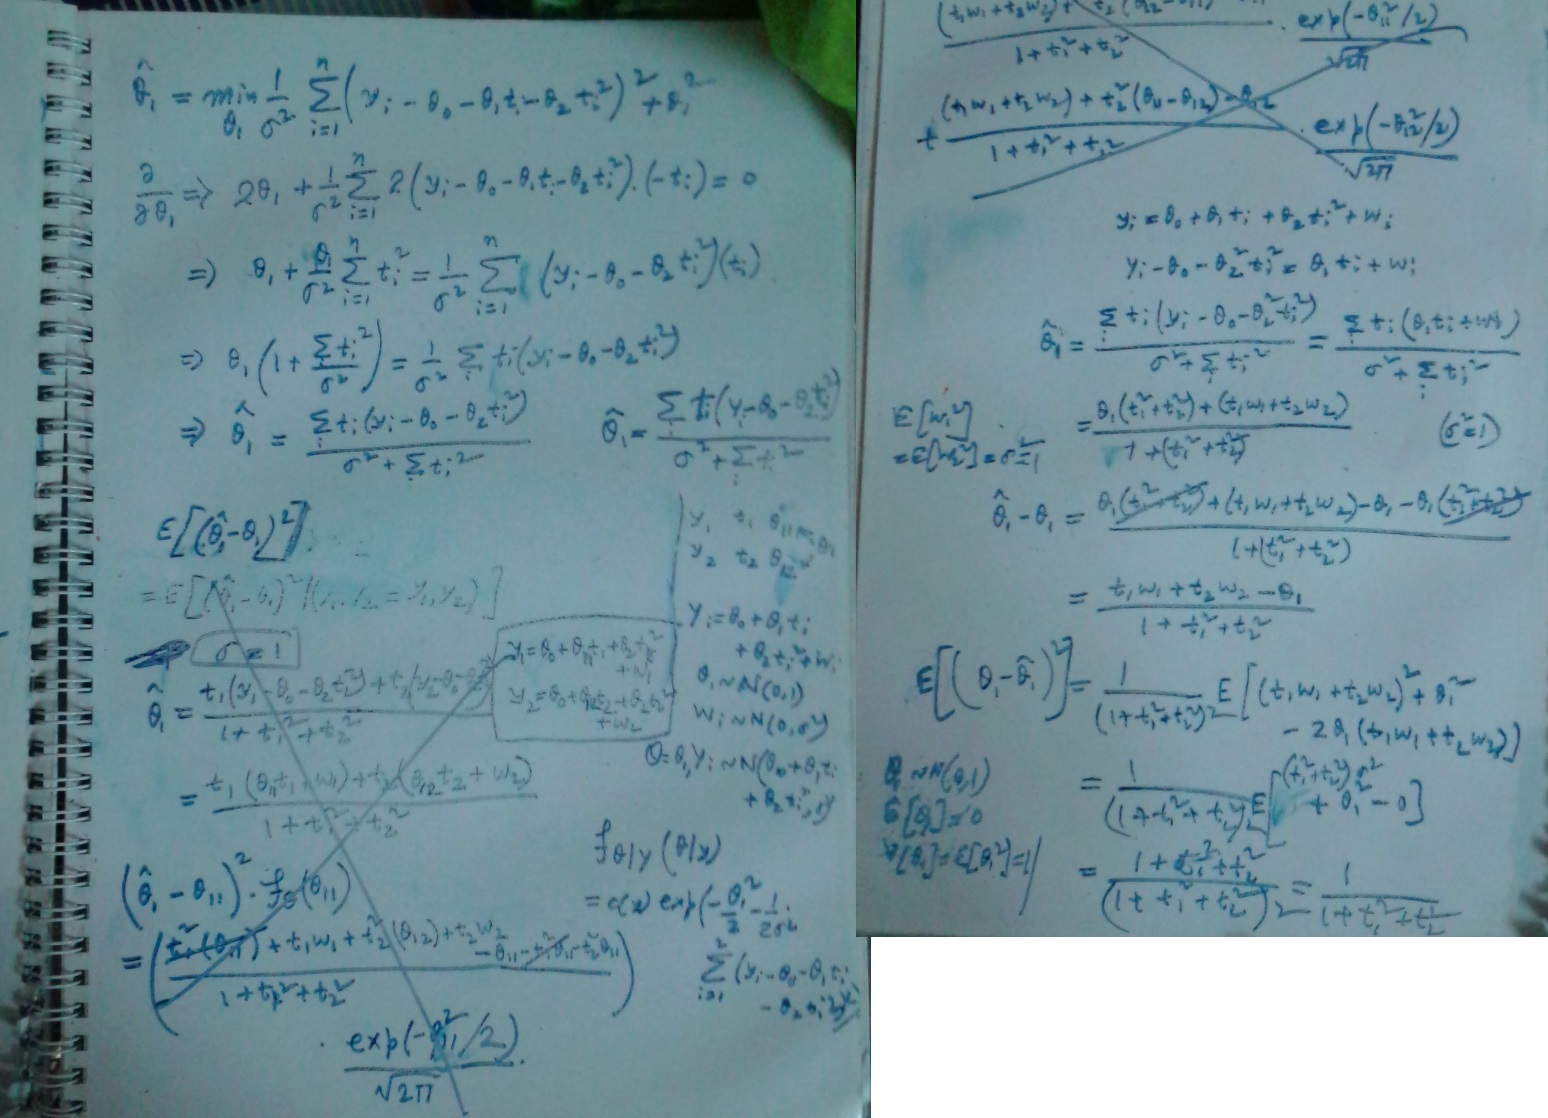 θ̂₁ = min_θ₁ 1/σ² Σ_{i=1}^{n} (yᵢ - θ₀ - θ₁tᵢ - θ₂tᵢ²)² + θ₁²
∂/∂θ₁ ⇒ 2θ₁ + 1/σ² Σ_{i=1}^{n} 2(yᵢ - θ₀ - θ₁tᵢ - θ₂tᵢ²).(-tᵢ) = 0
⇒ θ₁ + θ₁/σ² Σ_{i=1}^{n} tᵢ² = 1/σ² Σ_{i=1}^{n} (yᵢ - θ₀ - θ₂tᵢ²)(tᵢ)
⇒ θ₁(1 + Σtᵢ²/σ²) = 1/σ² Σᵢ tᵢ(yᵢ - θ₀ - θ₂tᵢ²)
⇒ θ̂₁ = Σᵢ tᵢ(yᵢ - θ₀ - θ₂tᵢ²) / (σ² + Σᵢ tᵢ²)
θ̂₁ = Σᵢ tᵢ(yᵢ - θ₀ - θ₂tᵢ²) / (σ² + Σᵢ tᵢ²)
E[(θ̂₁ - θ₁)²]
= E[(θ̂₁ - θ₁)²|(Y₁, Y₂ = y₁, y₂)]
σ = 1
θ̂₁ = t₁(y₁ - θ₀ - θ₂t₁²) + t₂(y₂ - θ₀ - θ₂t₂²) / (1 + t₁² + t₂²)
= t₁(θ₁₁t₁ + w₁) + t₂(θ₁₂t₂ + w₂) / (1 + t₁² + t₂²)
(θ̂₁ - θ₁₁)² . f_θ(θ₁₁)
= (t₁²(θ₁₁) + t₁w₁ + t₂²(θ₁₂) + t₂w₂ - θ₁₁ - t₁²θ₁₁ - t₂²θ₁₁ / (1 + t₁² + t₂²))
. exp(-θ₁₁²/2) / √2π .
y₁ t₁ θ₁₁
y₂ t₂ θ₁₂
y₁ = θ₀ + θ₁₁t₁ + θ₂t₁² + w₁
y₂ = θ₀ + θ₁₂t₂ + θ₂t₂² + w₂
Yᵢ = θ₀ + θ₁tᵢ
+ θ₂tᵢ² + wᵢ
θ₁ ~ N(0,1)
wᵢ ~ N(0,σ²)
Θ=θ₁, Yᵢ ~ N(θ₀ + θ₁tᵢ
+ θ₂tᵢ², 1)
f_θ|Y (θ|y)
= c(y) exp(-θ₁²/2 - 1/2σ²
Σ_{i=1}^{2} (yᵢ - θ₀ - θ₁tᵢ
- θ₂tᵢ²)²)
1 + t₁² + t₂² . exp(-θ₁₁²/2) / √2π
+ (t₁w₁ + t₂w₂) + t₂²(θ₁₁ - θ₁₂) - θ₁₂ / (1 + t₁² + t₂²) . exp(-θ₁₂²/2) / √2π
yᵢ = θ₀ + θ₁tᵢ + θ₂tᵢ² + wᵢ
yᵢ - θ₀ - θ₂²tᵢ² = θ₁tᵢ + wᵢ
θ̂₁ = Σᵢ tᵢ(yᵢ - θ₀ - θ₂²tᵢ²) / (σ² + Σᵢ tᵢ²) = Σᵢ tᵢ(θ₁tᵢ + wᵢ) / (σ² + Σᵢ tᵢ²)
E[w₁²]
= E[w₂²] = σ² = 1
= θ₁(t₁² + t₂²) + (t₁w₁ + t₂w₂) / 1 + (t₁² + t₂²) (σ² = 1)
θ̂₁ - θ₁ = θ₁(t₁² + t₂²) + (t₁w₁ + t₂w₂) - θ₁ - θ₁(t₁² + t₂²) / 1 + (t₁² + t₂²)
= t₁w₁ + t₂w₂ - θ₁ / 1 + t₁² + t₂²
E[(θ₁ - θ̂₁)²] = 1/(1 + t₁² + t₂²)² E[(t₁w₁ + t₂w₂)² + θ₁²
- 2θ₁(t₁w₁ + t₂w₂)]
θ₁ ~ N(0,1)
E[θ₁] = 0
V[θ₁] = E[θ₁²] = 1
= 1/(1 + t₁² + t₂²)² E[(t₁² + t₂²)σ² + θ₁² - 0]
= 1 + t₁² + t₂² / (1 + t₁² + t₂²)² = 1 / 1 + t₁² + t₂²